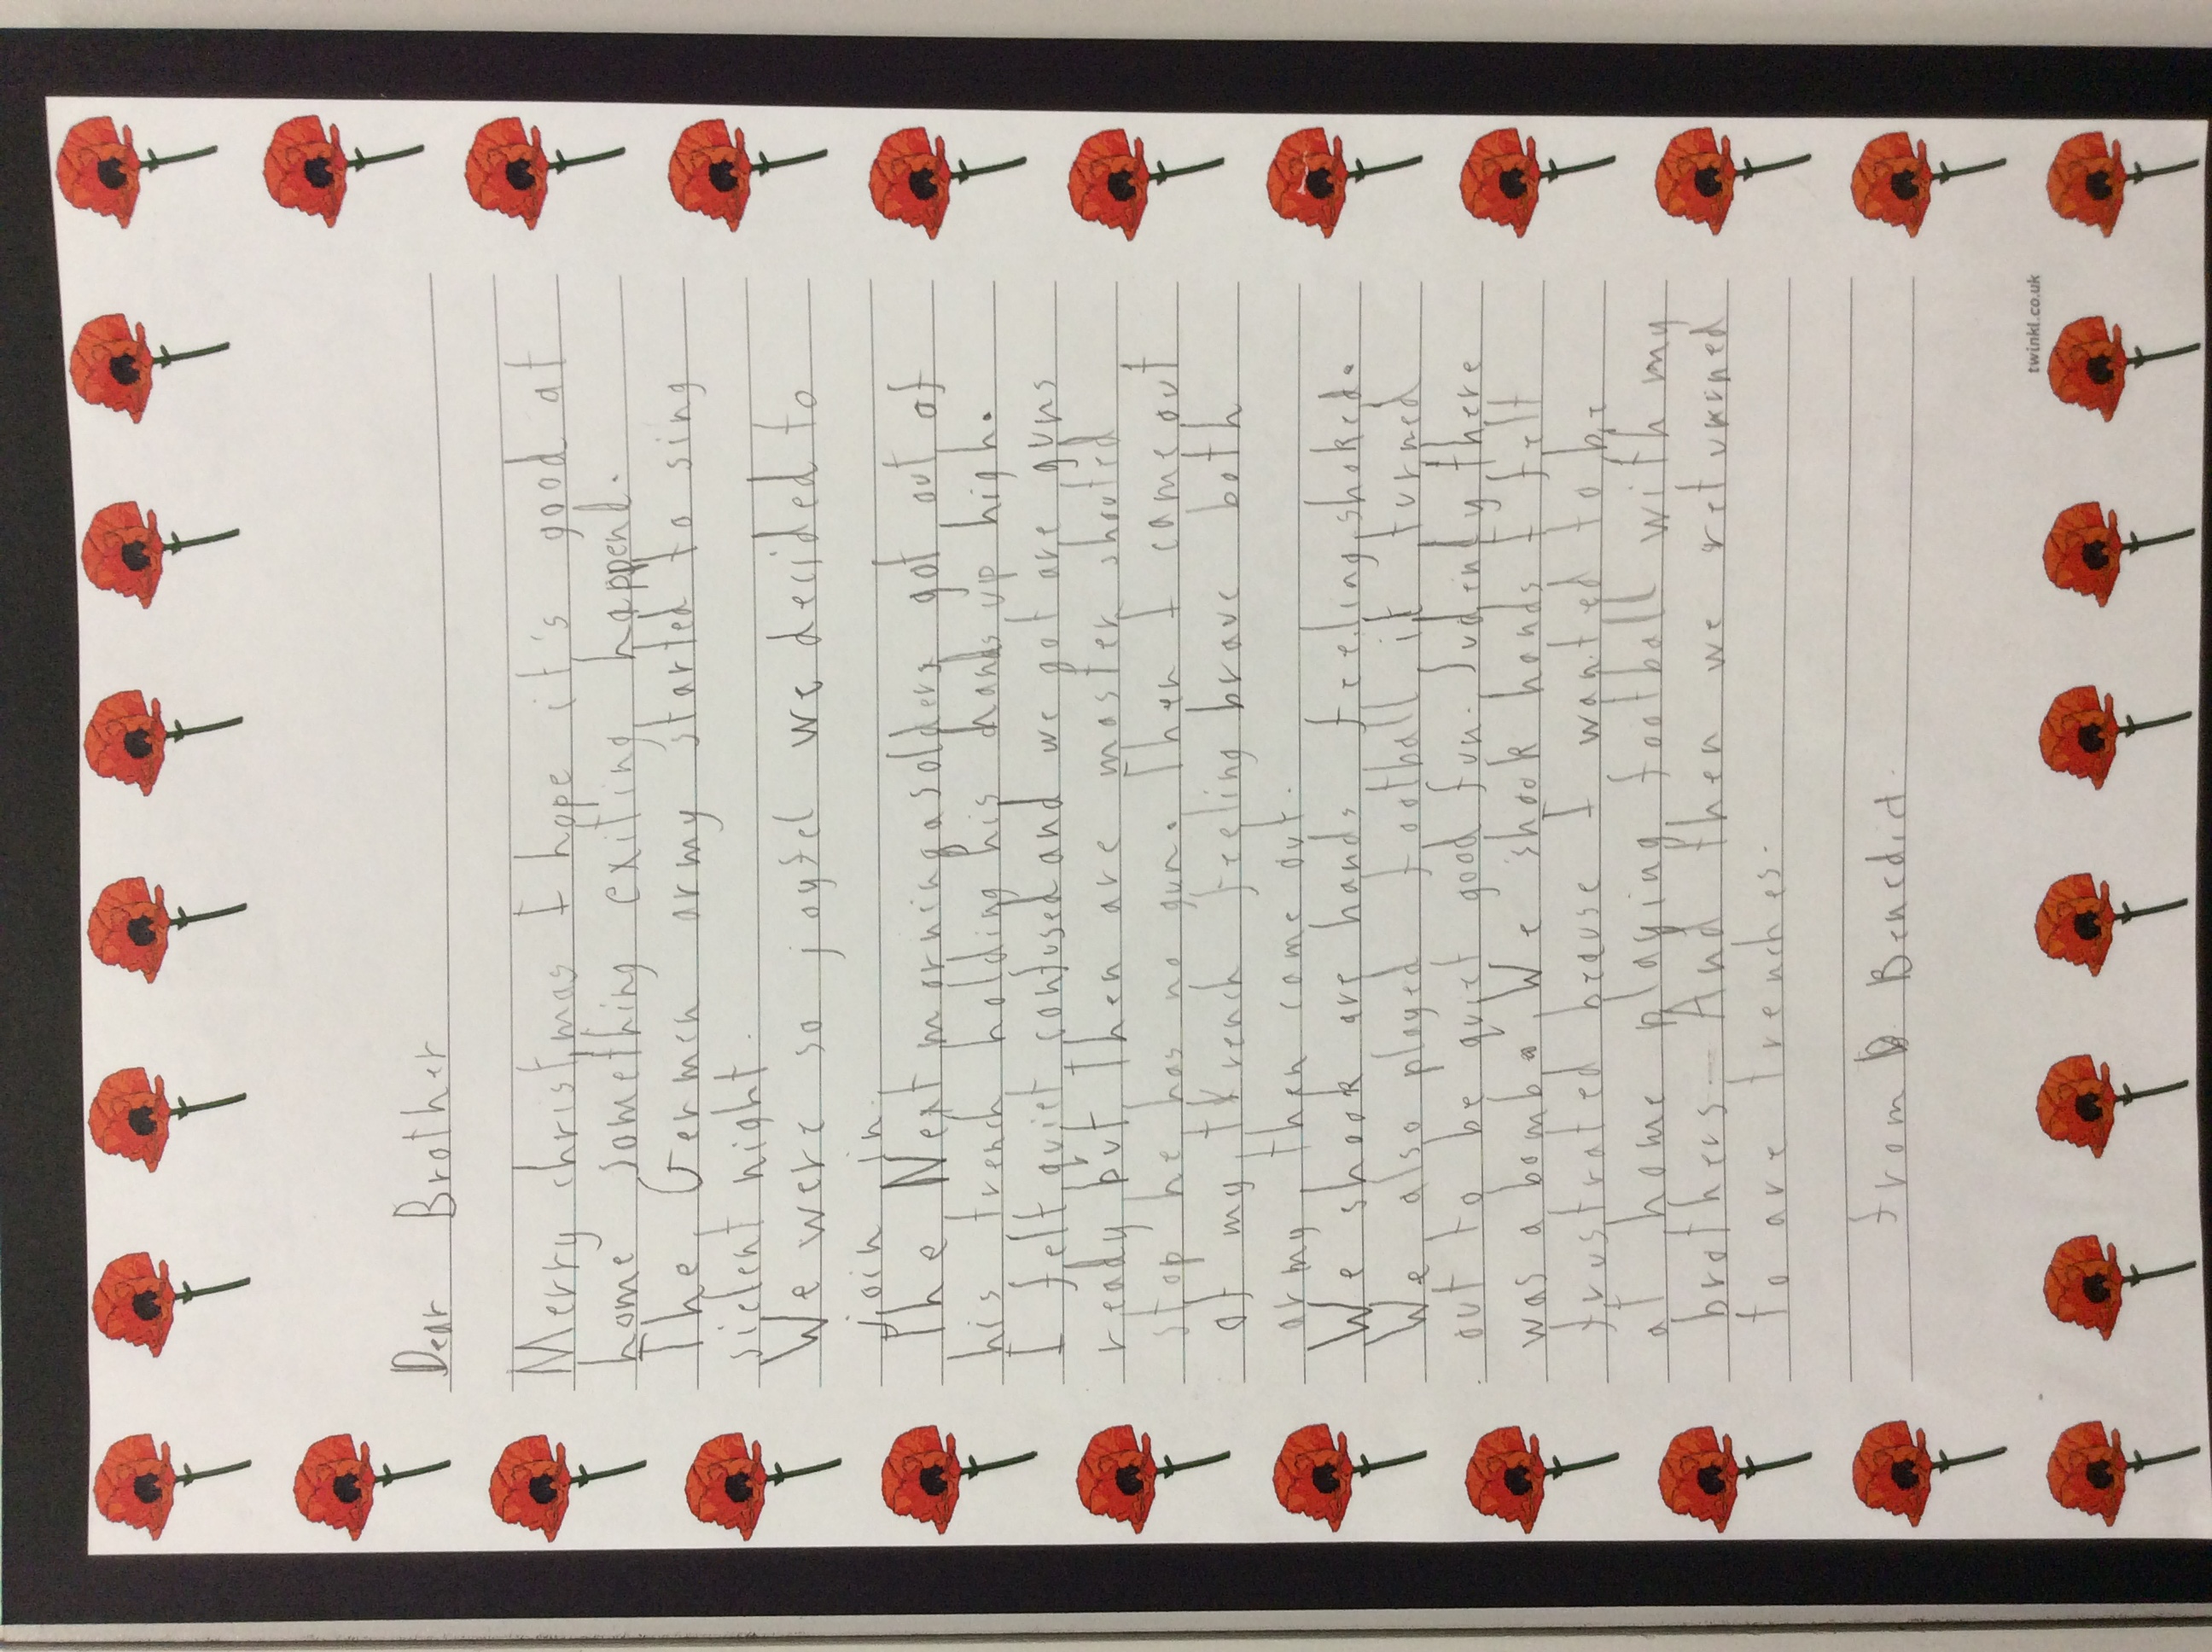 Dear Brother
Merry christmas I hope it's good at
home something exiting happend.
The German army started to sing
siclent night.
We were so joyfel we decided to
join in.
The Next morning a solders got out of
his trench holding his hands up high.
I felt quiet confused and we got are guns
ready but Then are master shouted
stop he has no gun. Then I came out
of my trench feeling brave both
army then come out.
We shook are hands feeling shoked.
We also played football it turned
out to be quiet good fun. Sudenly there
was a bomb. We shook hands I felt
frustrated beause I wanted to be
at home playing football with my
brothers... And then we returned
to are trenches.
from B. Benedict.
twinkl.co.uk